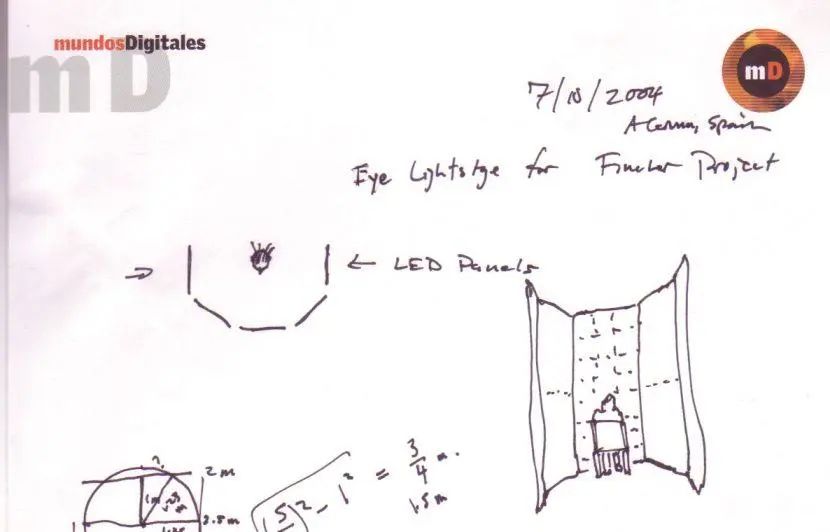 mundosDigitales
mD
mD
7/10/2004
A Coruna, Spain
Eye Lightstage for Fincher Project
→ ← LED Panels
3/4 m.
1.5 m
2 m
1m
(.5)² - 1² =